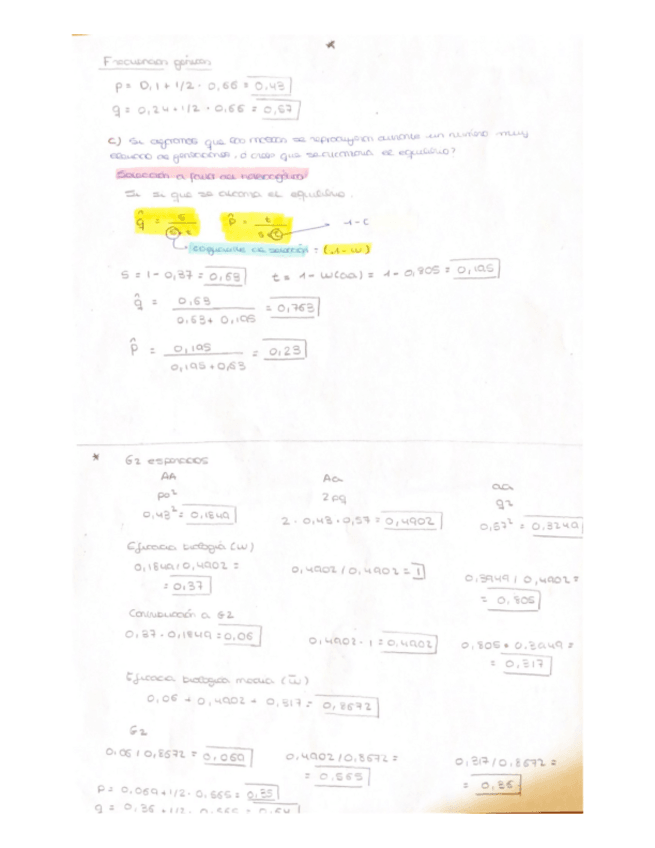 *
Frecuencias génicas
p = 0,1 + 1/2 · 0,66 = 0,43
q = 0,24 + 1/2 · 0,66 = 0,57
c) Si dejamos que las moscas se reproduzcan durante un número muy
elevado de generaciones, ¿crees que se alcanzaría el equilibrio?
Selección a favor del heterocigoto
Sí que se alcanza el equilibrio.
q̂ = s / s + t p̂ = t / s + t 1 - t
coeficiente de selección = (1 - w)
s = 1 - 0,37 = 0,63 t = 1 - W(aa) = 1 - 0,805 = 0,195
q̂ = 0,63 / 0,63 + 0,195 = 0,763
p̂ = 0,195 / 0,195 + 0,63 = 0,23
* G2 esperados
AA Aa aa
p² 2pq q²
0,43² = 0,1849 2 · 0,43 · 0,57 = 0,4902 0,57² = 0,3249
Eficacia biológica (W)
0,1849 / 0,4902 = 0,4902 / 0,4902 = 1 0,3949 / 0,4902 =
= 0,37 = 0,805
Contribución a G2
0,37 · 0,1849 = 0,06 0,4902 · 1 = 0,4902 0,805 * 0,3949 =
= 0,317
Eficacia biológica media (w̄)
0,06 + 0,4902 + 0,317 = 0,8672
G2
0,06 / 0,8672 = 0,069 0,4902 / 0,8672 = 0,317 / 0,8672 =
= 0,565 = 0,36
p = 0,069 + 1/2 · 0,565 = 0,35
q = 0,36 + 1/2 · 0,565 = 0,64